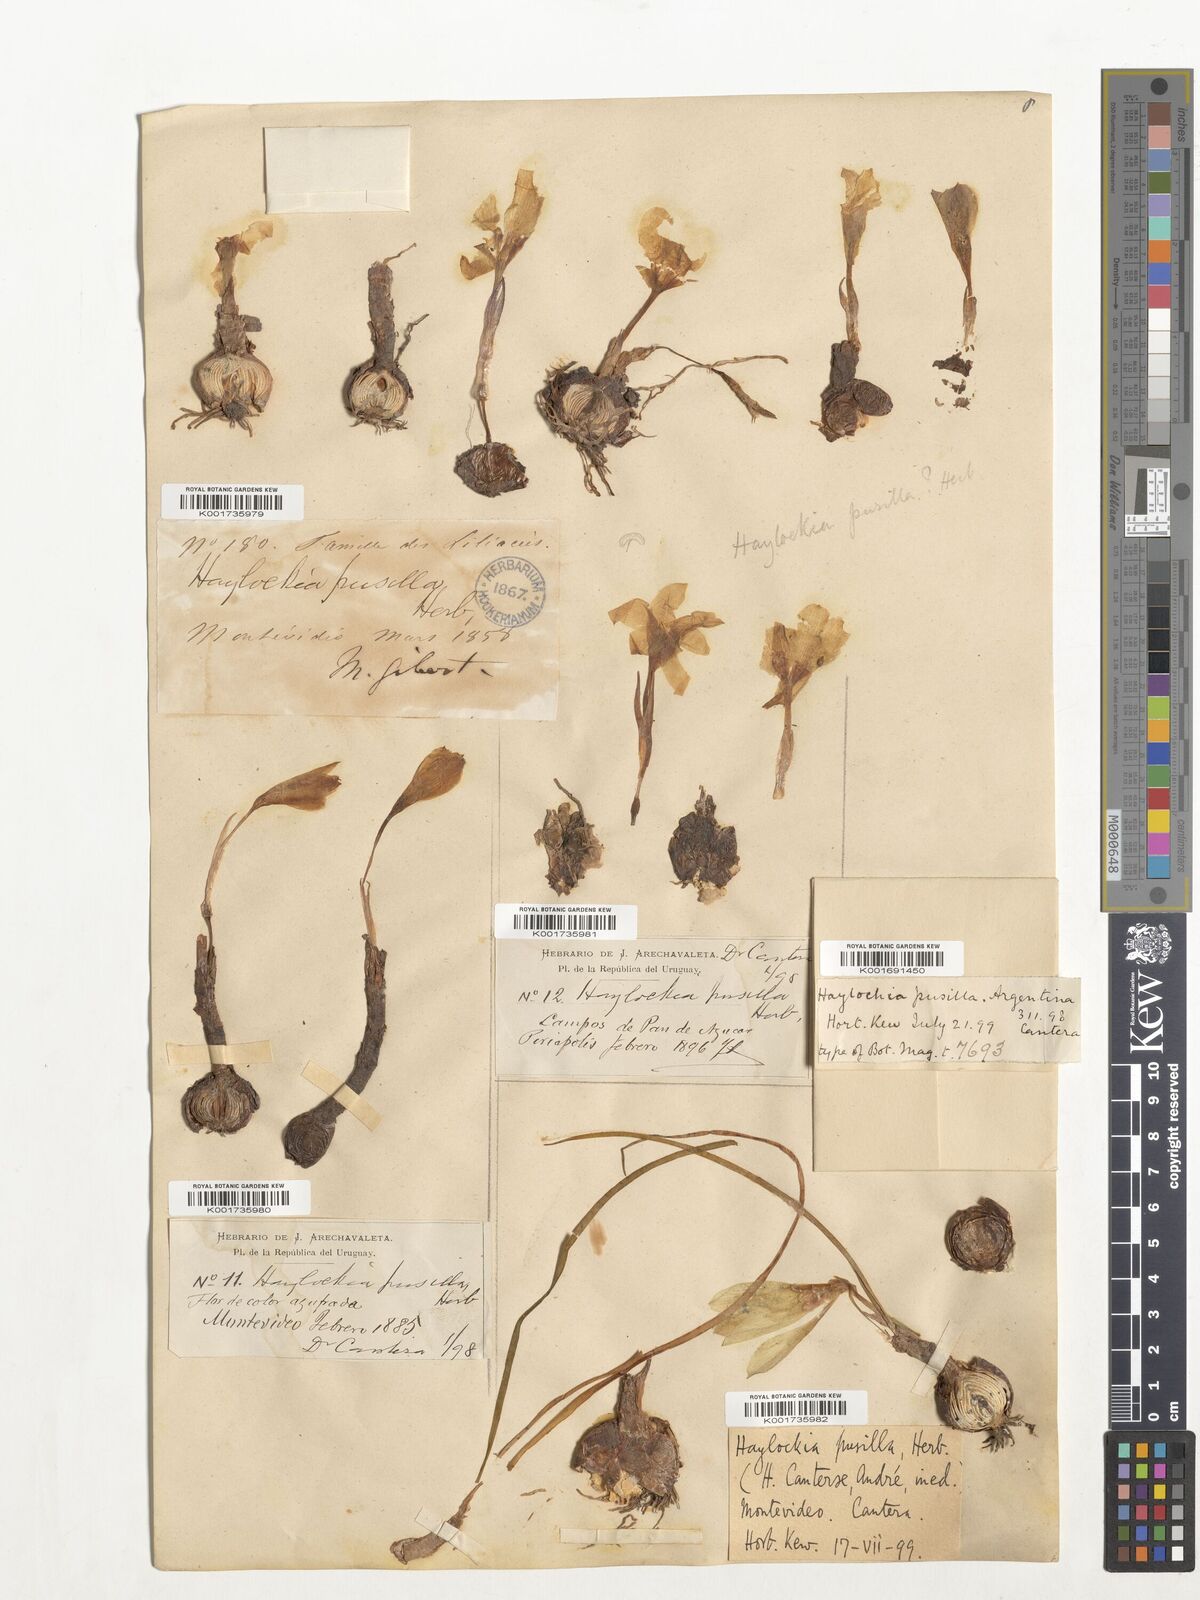 ROYAL BOTANIC GARDENS KEW
K001735979
No 180. Famille des Liliacées.
Haylockia pusilla,
Herb,
Montévidéo Mars 1858
M. Gibert.
HERBARIUM
1867.
HOOKERIANUM
Haylockia pusilla? Herb.
ROYAL BOTANIC GARDENS KEW
K001735981
HEBRARIO DE J. ARECHAVALETA. Dr Cantera
Pl. de la República del Uruguay. 1/98
No 12. Haylockia pusilla
Herb,
Campos de Pan de Azucar
Piriapolis febrero 1896
ROYAL BOTANIC GARDENS KEW
K001691450
Haylockia pusilla. Argentina
311.98
Hort. Kew July 21.99 Cantera
type of Bot. Mag. t. 7693
ROYAL BOTANIC GARDENS KEW
K001735980
HEBRARIO DE J. ARECHAVALETA.
Pl. de la República del Uruguay.
No 11. Haylockia pusilla,
Flor de color azufrada Herb
Montevideo Febrero 1885
Dr Cantera 1/98
ROYAL BOTANIC GARDENS KEW
K001735982
Haylockia pusilla, Herb.
(H. Canterae, André, ined.
Montevideo. Cantera.
Hort. Kew. 17-VII-99.
inches
Density
Don Williams
centimeters
M000648
Royal Botanic Gardens
Kew
copyright reserved
0 1 2 3 4 5 6 7 8 9 10
cm